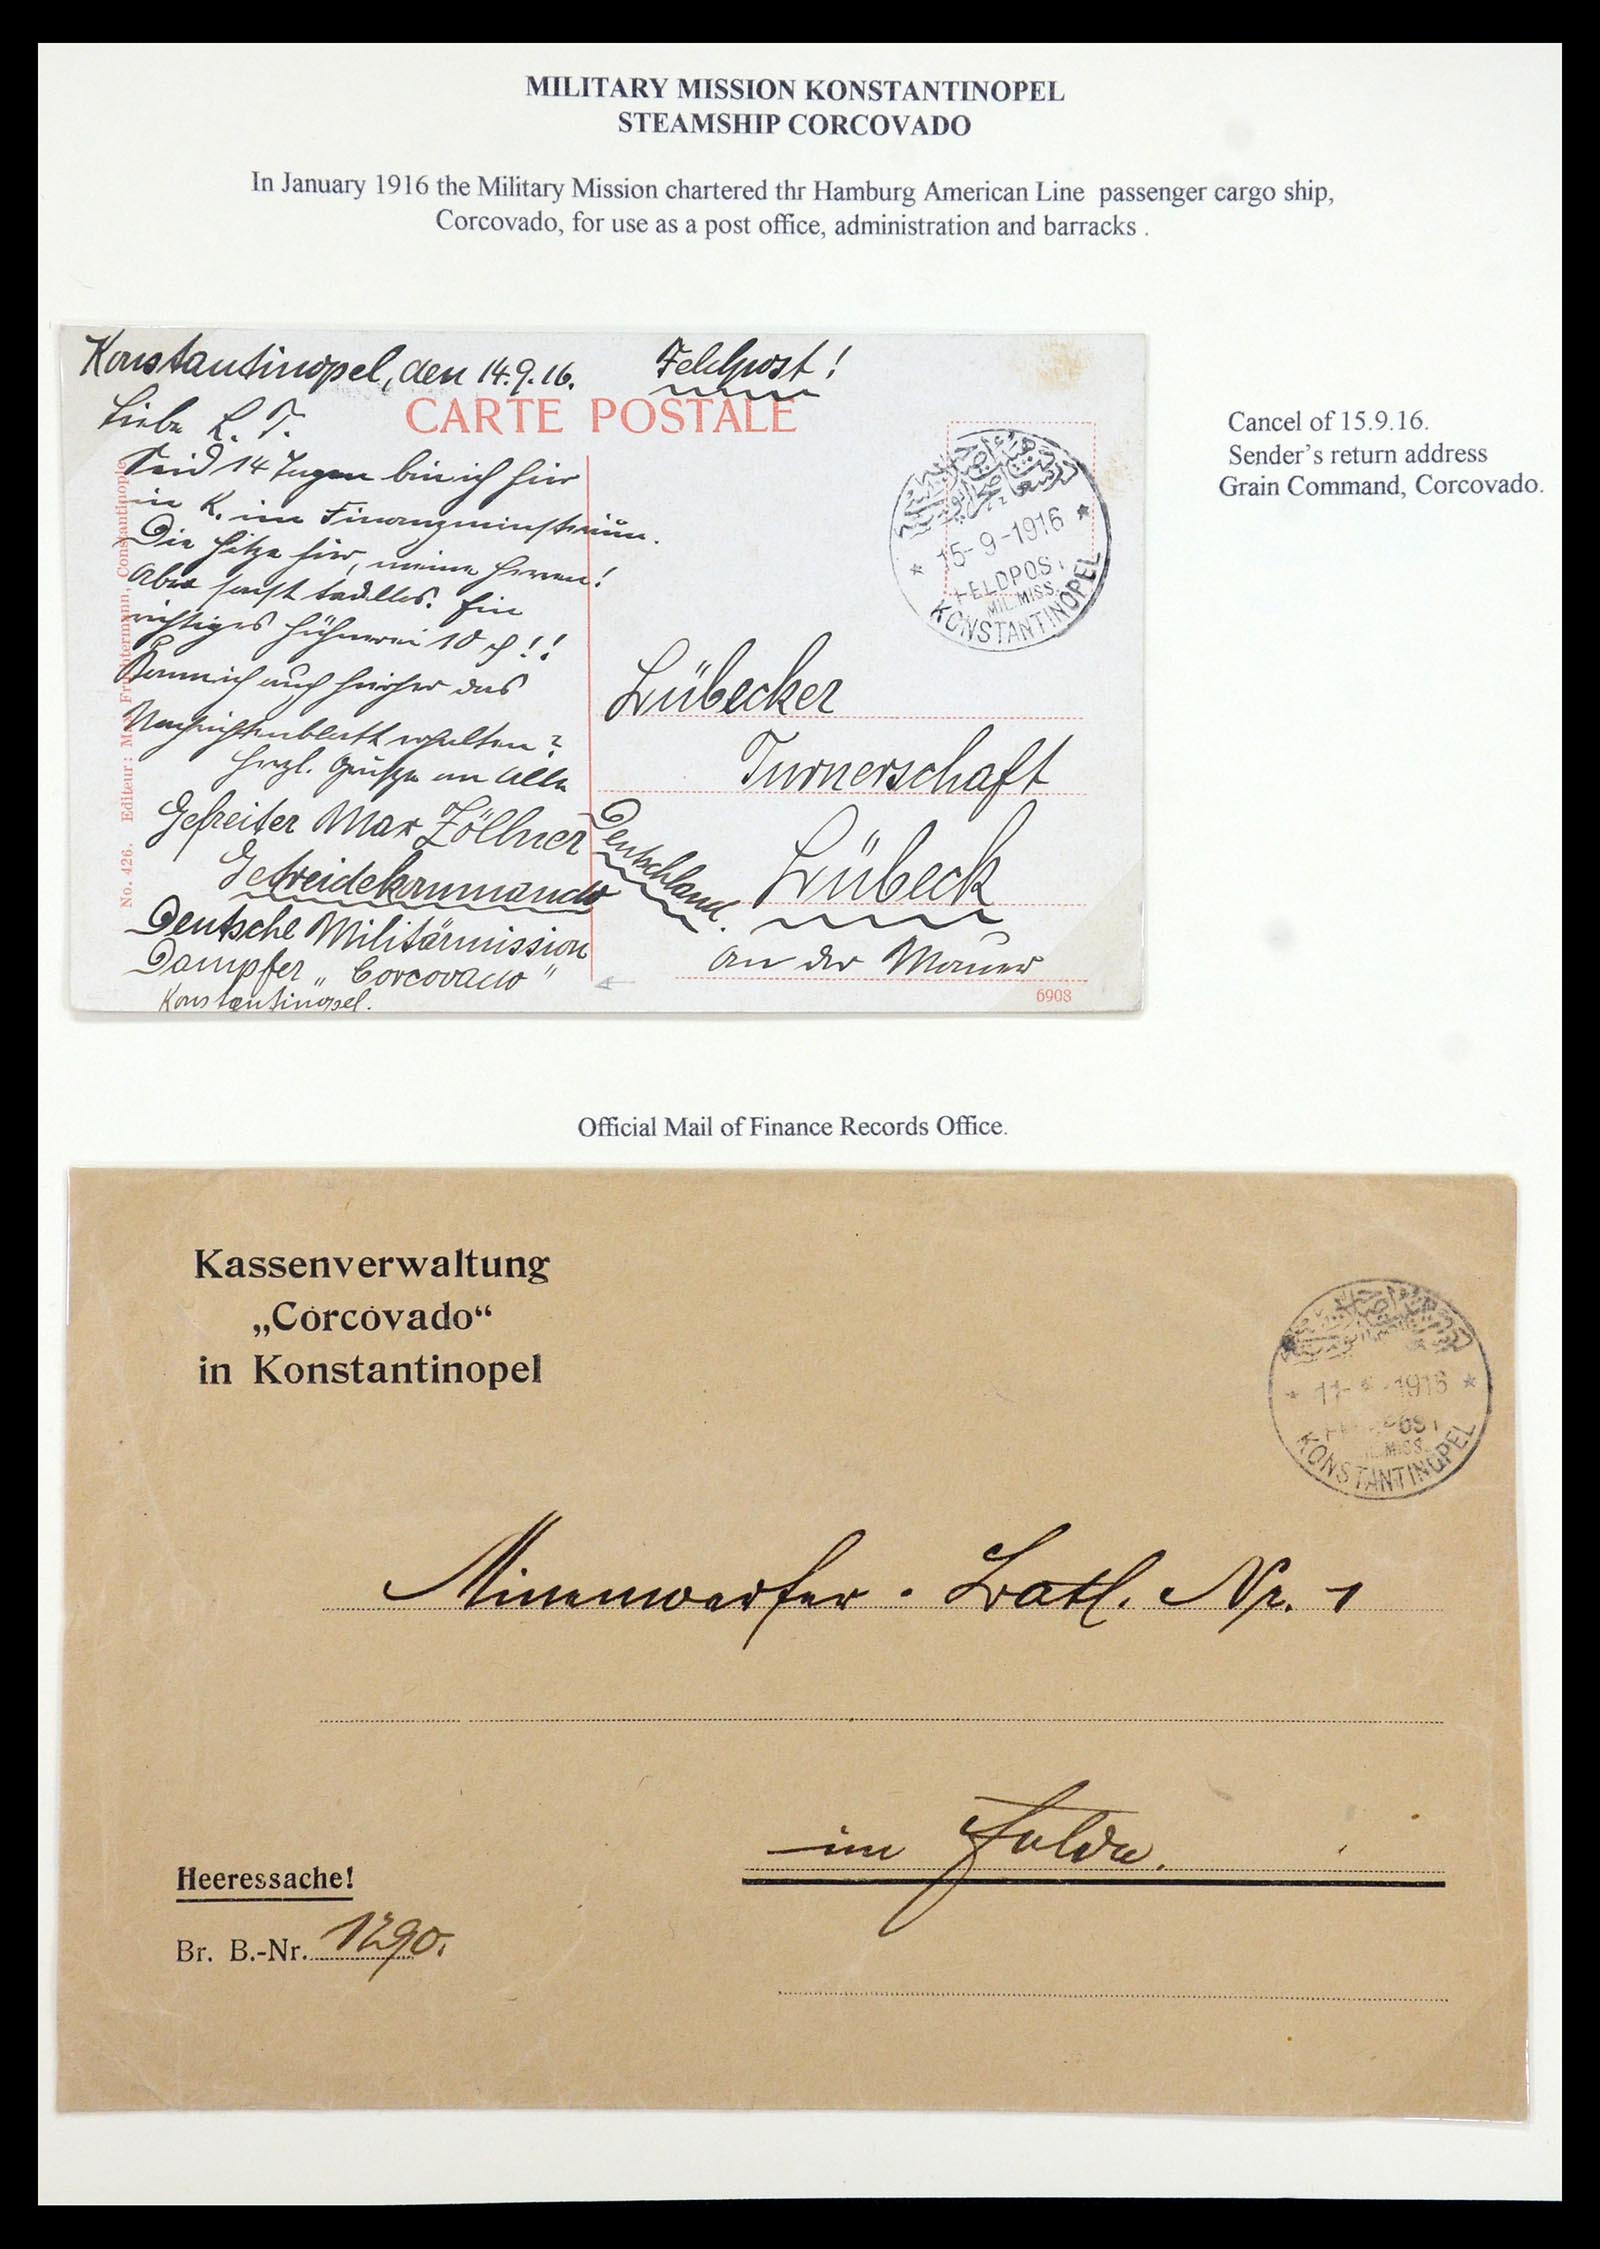 MILITARY MISSION KONSTANTINOPEL
STEAMSHIP CORCOVADO
In January 1916 the Military Mission chartered thr Hamburg American Line passenger cargo ship,
Corcovado, for use as a post office, administration and barracks .
Konstantinopel, den 14.9.16.
Feldpost!
CARTE POSTALE
Liebe L. T.
Seid 14 Tagen bin ich hier
in K. im Finanzministerium.
Die Hitze hier, meine Herren!
Aber sonst tadellos. Ein
richtiges Hühnerei 10 ₰!!
Kann ich auch hierher das
Nachrichtenblatt erhalten?
Herzl. Grüsze an Alle
Gefreiter Max Zöllner
Getreidekommando
Deutsche Militärmission
Dampfer "Corcovado"
Konstantinopel.
No. 426. Editeur: Fruchtermann, Constantinople
15-9-1916
FELDPOST
MIL.MISS.
KONSTANTINOPEL
Lübecker
Turnerschaft
Lübeck
Deutschland.
An der Mauer
6908
Cancel of 15.9.16.
Sender's return address
Grain Command, Corcovado.
Official Mail of Finance Records Office.
Kassenverwaltung
„Corcovado“
in Konstantinopel
11- -1916
MISS.
KONSTANTINOPEL
Minenwerfer-Batl. Nr. 1
im Felde.
Heeressache!
Br. B.-Nr. 1290.